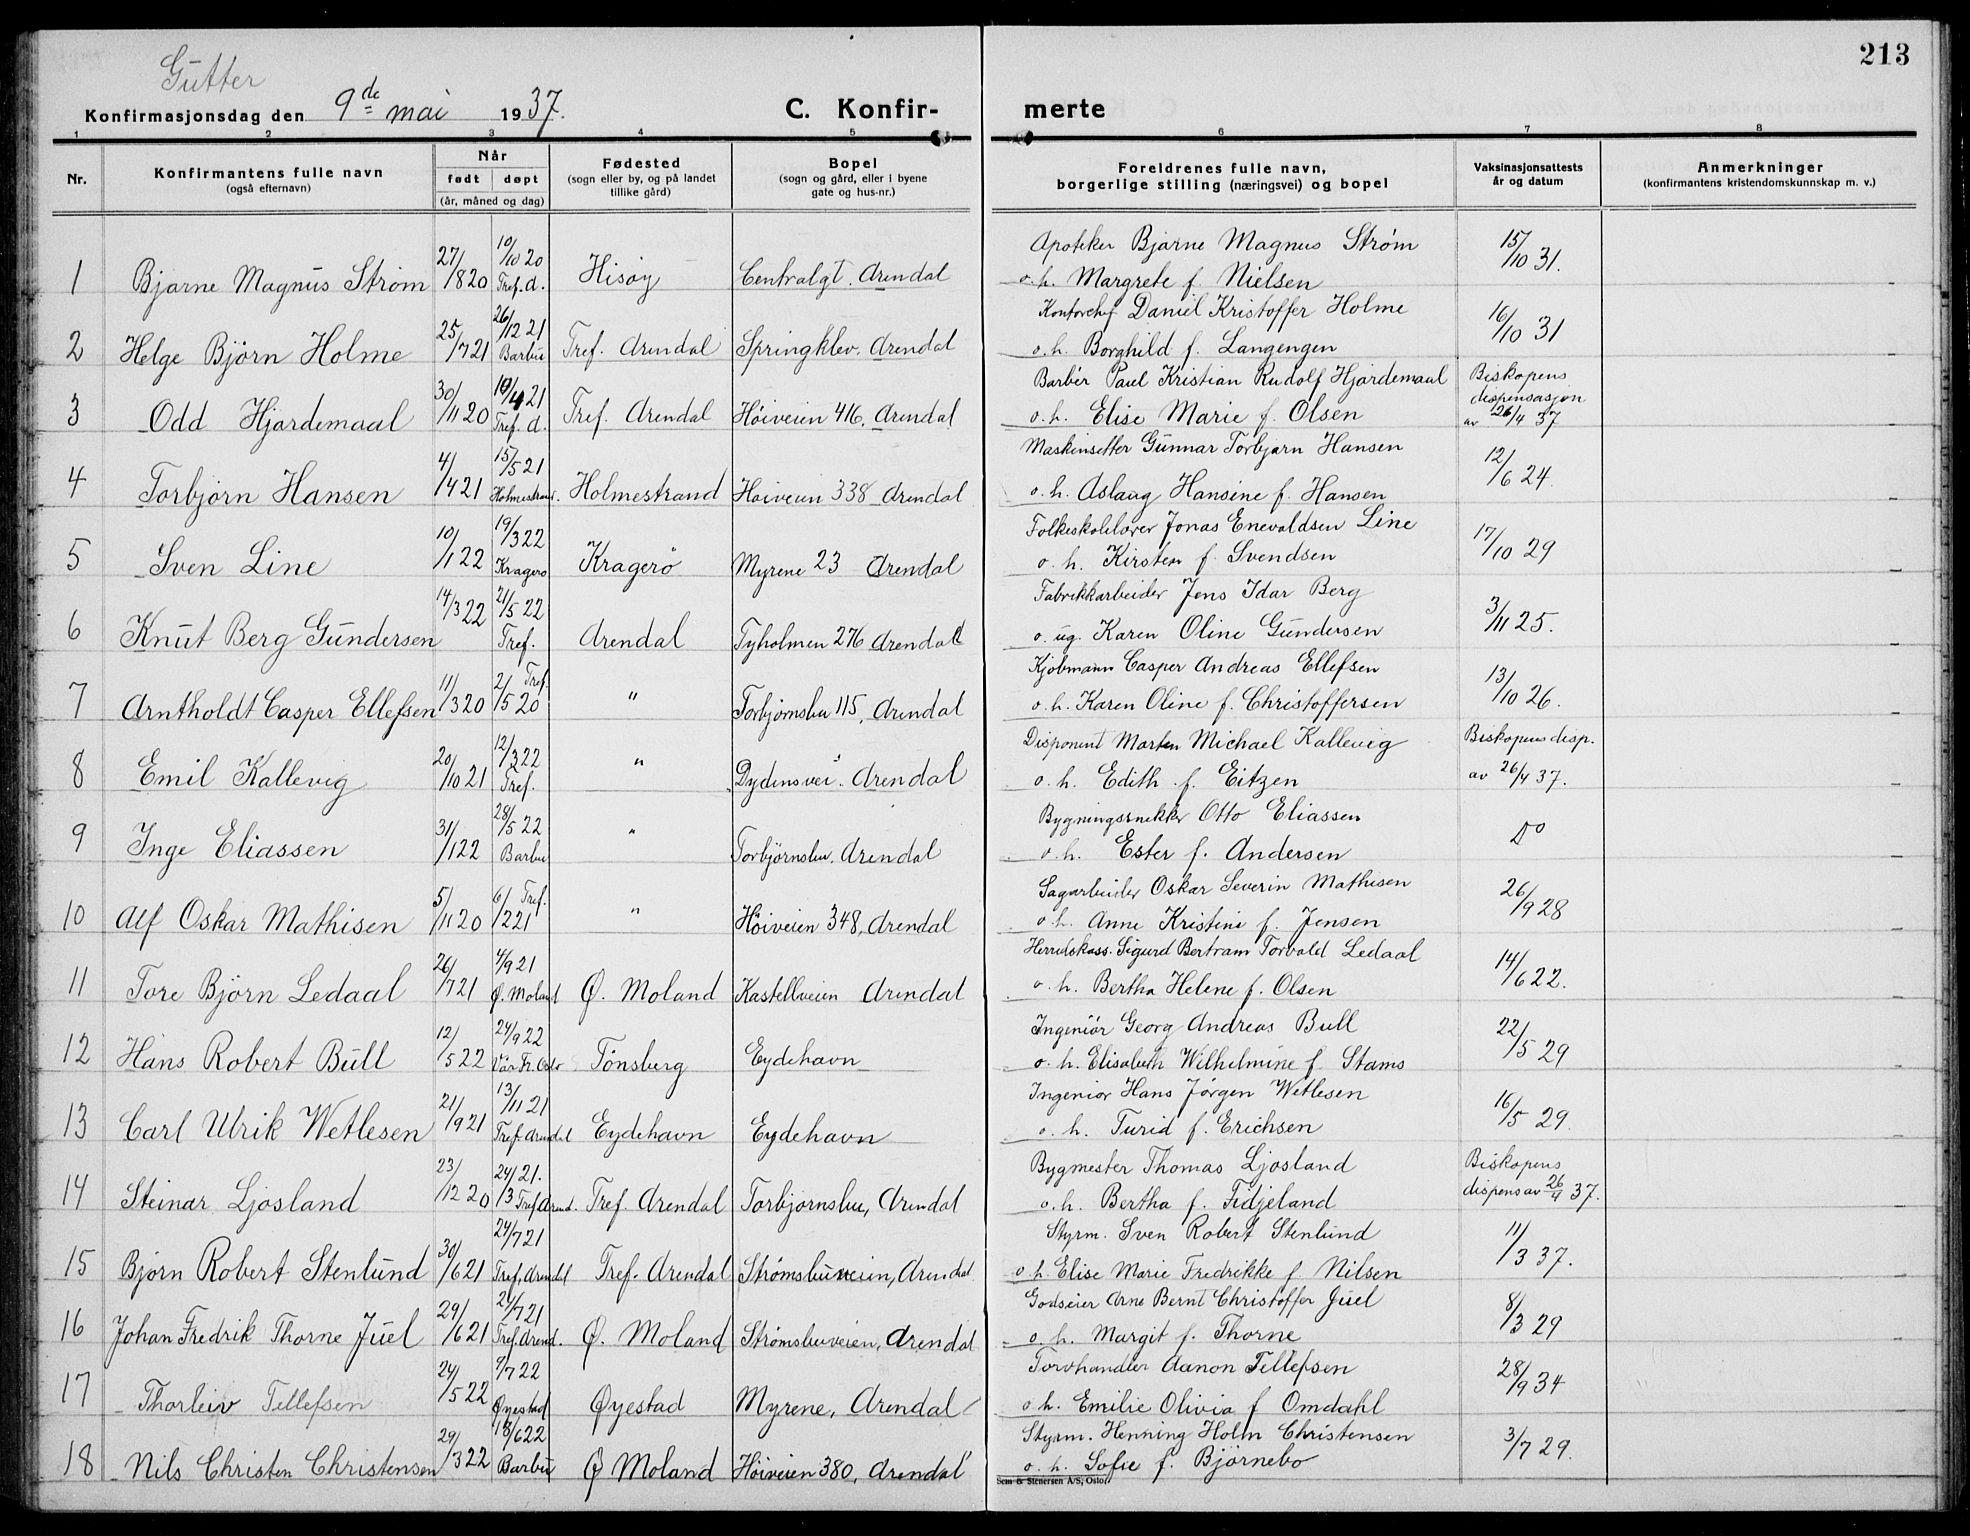 213
Gutter
Konfirmasjonsdag den 9de mai 1937.
C. Konfir-merte
1 2 3 4 5 6 7 8
Nr.
Konfirmantens fulle navn
(også efternavn)
Når
født døpt
(år, måned og dag)
Fødested
(sogn eller by, og på landet
tillike gård)
Bopel
(sogn og gård, eller i byene
gate og hus-nr.)
Foreldrenes fulle navn,
borgerlige stilling (næringsvei) og bopel
Vaksinasjonsattests
år og datum
Anmerkninger
(konfirmantens kristendomskunnskap m. v.)
1 Bjarne Magnus Strøm 27/8 20 10/10 20 Tref. d. Hisøy Centralgt. Arendal Apoteker Bjarne Magnus Strøm 15/10 31.
o. h. Margrete f. Nielsen
2 Helge Bjørn Holme 25/7 21 26/12 21 Barbu Tref. Arendal Springklev. Arendal Kontorchef Daniel Kristoffer Holme 16/10 31
o. h. Borghild f. Langengen
3 Odd Hjardemaal 30/11 20 10/4 21 Tref. d. Tref. Arendal Höiveien 416. Arendal Barbér Paul Kristian Rudolf Hjardemaal Biskopens
o. h. Elise Marie f. Olsen dispensasjon
av 26/4 37
4 Torbjørn Hansen 4/4 21 15/5 21 Holmestrand. Holmestrand Höiveien 338 Arendal Maskinsetter Gunnar Torbjørn Hansen 12/6 24.
o. h. Aslaug Hansine f. Hansen
5 Sven Line 10/1 22 19/3 22 Kragerø Kragerö Myrene 23 Arendal Folkeskolelærer Jonas Enevaldsen Line 17/10 29
o. h. Kirsten f. Svendsen
6 Knut Berg Gundersen 14/3 22 21/5 22 Tref. Arendal Tyholmen 276 Arendal Fabrikkarbeider Jens Idar Berg 3/11 25.
o. ug. Karen Oline Gundersen
7 Arntholdt Casper Ellefsen 11/3 20 2/5 20 Tref. " Torbjørnsbu 115, Arendal Kjöbmann Casper Andreas Ellefsen 13/10 26.
o. h. Karen Oline f. Christoffersen
8 Emil Kallevig 20/10 21 12/3 22 Tref. " Dydensvei. Arendal Disponent Morten Michael Kallevig Biskopens disp.
o. h. Edith f. Eitzen av 26/4 37.
9 Inge Eliassen 31/1 22 28/5 22 Barbu " Torbjørnsbu. Arendal Bygningssnekker Otto Eliassen Do
o. h. Ester f. Andersen
10 Alf Oskar Mathisen 5/11 20 6/2 21 Tref. " Höiveien 348, Arendal Sagarbeider Oskar Severin Mathisen 26/9 28
o. h. Anne Kristine f. Jensen
11 Tore Björn Ledaal 26/7 21 4/9 21 Ø. Moland Ø. Moland Kastellveien Arendal Herredskass. Sigurd Bertram Torvald Ledaal 14/6 22.
o. h. Bertha Helene f. Olsen
12 Hans Robert Bull 12/5 22 24/9 22 Vår Fr. Oslo Tönsberg Eydehavn Ingeniör Georg Andreas Bull 22/5 29
o. h. Elisabeth Wilhelmine f. Stams
13 Carl Ulrik Wetlesen 21/9 21 13/11 21 Tref. Arendal Eydehavn Eydehavn Ingeniør Hans Jørgen Wetlesen 16/5 29.
o. h. Turid f. Erichsen
14 Steinar Ljosland 23/12 20 24/3 21. Tref Arend. Tref. Arendal Torbjørnsbu, Arendal Bygmester Thomas Ljosland Biskopens
o. h. Bertha f. Fidjeland dispens av 26/4 37.
15 Bjørn Robert Stenlund 30/6 21 24/7 21 Tref. Arendal Tref. Arendal Strømsbuveien, Arendal Styrm. Sven Robert Stenlund 11/3 37.
o. h. Elise Marie Fredrikke f Nilsen
16 Johan Fredrik Thorne Juel 29/6 21 24/7 21 Tref. Arend. Ø. Moland Strømsbuveien, Arendal Godseier Arne Bernt Christoffer Juel 8/3 29
o. h. Margit f. Thorne
17 Thorleiv Tellefsen 24/5 22 9/7 22 Øyestad Øyestad Myrene, Arendal Torvhandler Aanon Tellefsen 28/9 34
o. h. Emilie Olivia f Omdahl
18 Nils Christen Christensen 29/3 22 18/6 22 Barbu Ø Moland Höiveien 380, Arendal Styrm. Henning Holm Christensen 3/7 29.
o. h. Sofie f. Björnebo
Sem & Stenersen A/S, Oslo.